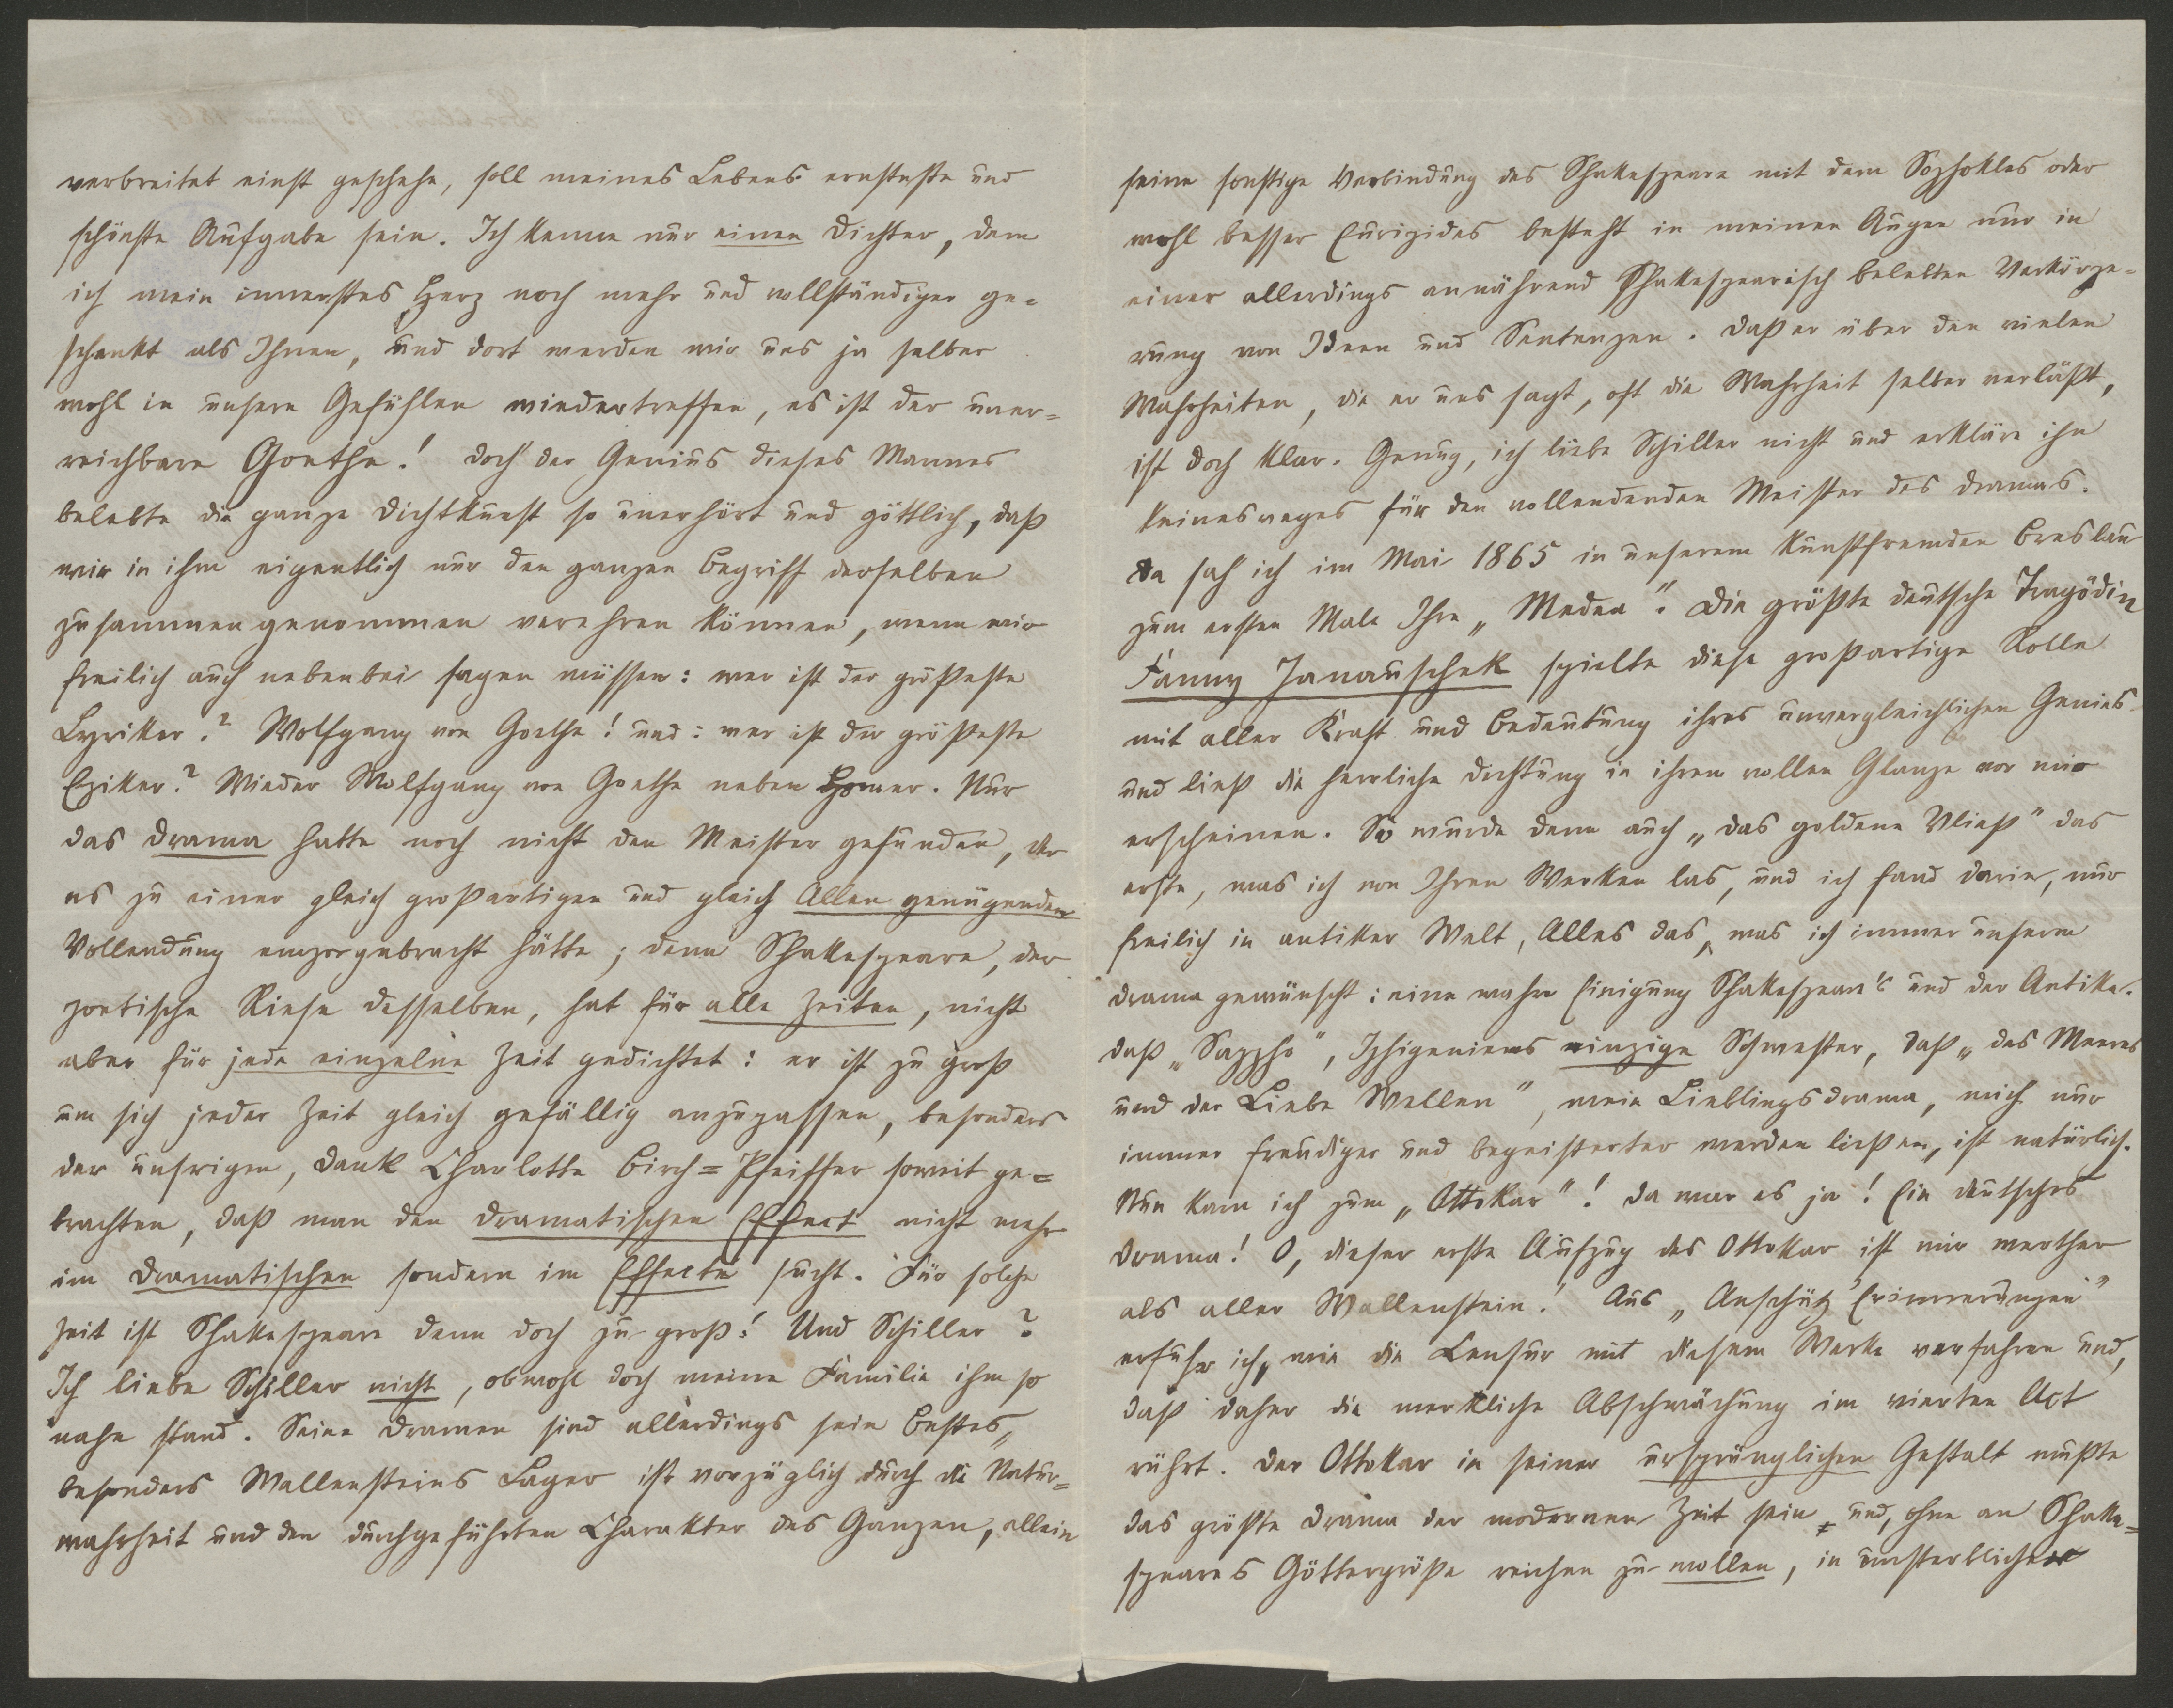 verbreitet einst geschehe, soll meines Lebens ernsteste und
schönste Aufgabe sein. Ich kenne nur einen Dichter, dem
ich mein innerstes Herz noch mehr und vollständiger ge=
schenkt als Ihnen, und dort werden wir uns ja selber
wohl in unsern Gefühlen wiedertreffen, es ist der uner=
reichbare Goethe! Doch der Genius dieses Mannes
belebte die ganze Dichtkunst so unerhört und göttlich, daß
wir in ihm eigentlich nur den ganzen Begriff derselben
zusammengenommen verehren können, wenn wir
freilich auch nebenbei sagen müssen: wer ist der größeste
Lyriker? Wolfgang von Goethe! und: wer ist der größeste
Epiker? Wieder Wolfgang von Goethe neben Homer. Nur
das Drama hatte noch nicht den Meister gefunden, der
es zu einer gleich großartigen und gleich Allen genügenden
Vollendung emporgebracht hätte; denn Shakespeare, der
poetische Riese desselben, hat für alle Zeiten, nicht
aber für jede einzelne Zeit gedichtet: er ist zu groß
um sich jeder Zeit gleich gefällig anzupassen, besonders
der unsrigen, Dank Charlotte Birch=Pfeiffer soweit ge=
brachten, daß man den dramatischen Effect nicht mehr
im Dramatischen sondern im Effecte sucht. Für solche
Zeit ist Shakespeare denn doch zu groß! Und Schiller?
Ich liebe Schiller nicht, obwohl doch meine Familie ihm so
nahe stand. Seine Dramen sind allerdings sein Bestes,
besonders Wallensteins Lager ist vorzüglich durch die Natur=
wahrheit und den durchgeführten Charakter des Ganzen, allein
seine sonstige Verbindung des Shakespeare mit dem Sophokles oder
wohl besser Euripides besteht in meinen Augen nur in
einer allerdings annährend Shakespearisch belebten Verkörpe=
rung von Ideen und Sentenzen. Daß er über den vielen
Wahrheiten, die er uns sagt, oft die Wahrheit selber verläßt,
ist doch klar. Genug, ich liebe Schiller nicht und erkläre ihn
keineswegs für den vollendenden Meister des Dramas.
Da sah ich im Mai 1865 in unserem kunstfremden Breslau
zum ersten Male Ihre „Medea“. Die größte deutsche Tragödin
Fanny Janauschek spielte diese großartige Rolle
mit aller Kraft und Bedeutung ihres unvergleichlichen Genies
und ließ die herrliche Dichtung in ihrem vollen Glanze vor mir
erscheinen. So wurde denn auch „das goldene Vließ“ das
erste, was ich von Ihren Werken las, und ich fand darin, nur
freilich in antiker Welt, Alles das, was ich immer unserm
Drama gewünscht: eine wahre Einigung Shakespeare's und der Antike.
Daß „Sappho“, Iphigeniens einzige Schwester, daß „des Meeres
und der Liebe Wellen“, mein Lieblingsdrama, mich nur
immer freudiger und begeisterter werden ließen, ist natürlich.
Nun kam ich zum „Ottokar“! Da war es ja! Ein deutsches
Drama! O, dieser erste Aufzug des Ottokar ist mir werther
als aller Wallenstein! Aus „Anschütz Erinnerungen“
erfuhr ich, wie die Censur mit diesem Werke verfahren und,
daß daher die merkliche Abschwächung im vierten Act
rührt. Der Ottokar in seiner ursprünglichen Gestalt mußte
das größte Drama der modernen Zeit sein und, ohne an Shake=
speares Göttergröße reichen zu wollen, in unsterblicher